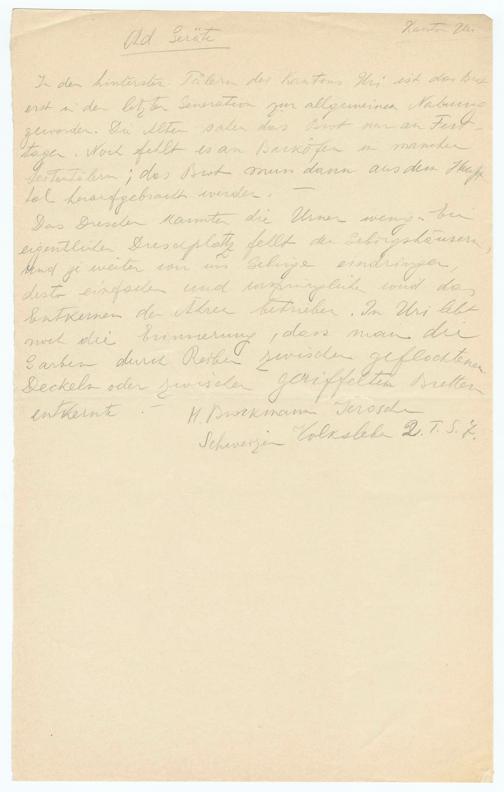 Ad Geräte
Kanton Uri
In den hintersten Tälern des Kantons Uri ist das Brot
erst in der letzten Generation zur allgemeinen Nahrung
geworden. Die Alten sahen das Brot nur an Fest-
tagen. Noch fehlt es an Backöfen in manchen
Seitentälern; das Brot muss dann aus dem Haupt
tal heraufgebracht werden. —
Das Dreschen kannten die Urner wenig. Der
eigentliche Dreschplatz fehlt den Gebirgshäusern,
und je weiter wir ins Gebirge eindringen,
desto einfacher und ursprünglicher wird das
Entkernen der Ähren betrieben. In Uri lebt
noch die Erinnerung, dass man die
Garben durch Reiben zwischen geflochtenen
Deckeln oder zwischen geriffelten Brettern
entkernte. —
H. Brockmann Jerosch
Schweizer Volksleben 2. T. S. 7.